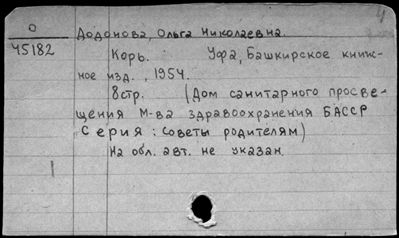 О
45182
Додонова, Ольга Николаевна.
Корь. Уфа, Башкирское книж-
ное изд., 1954.
8стр. (Дом санитарного просве-
щения М-ва здравоохранения БАССР
Серия: Советы родителям)
На обл. авт. не указан.